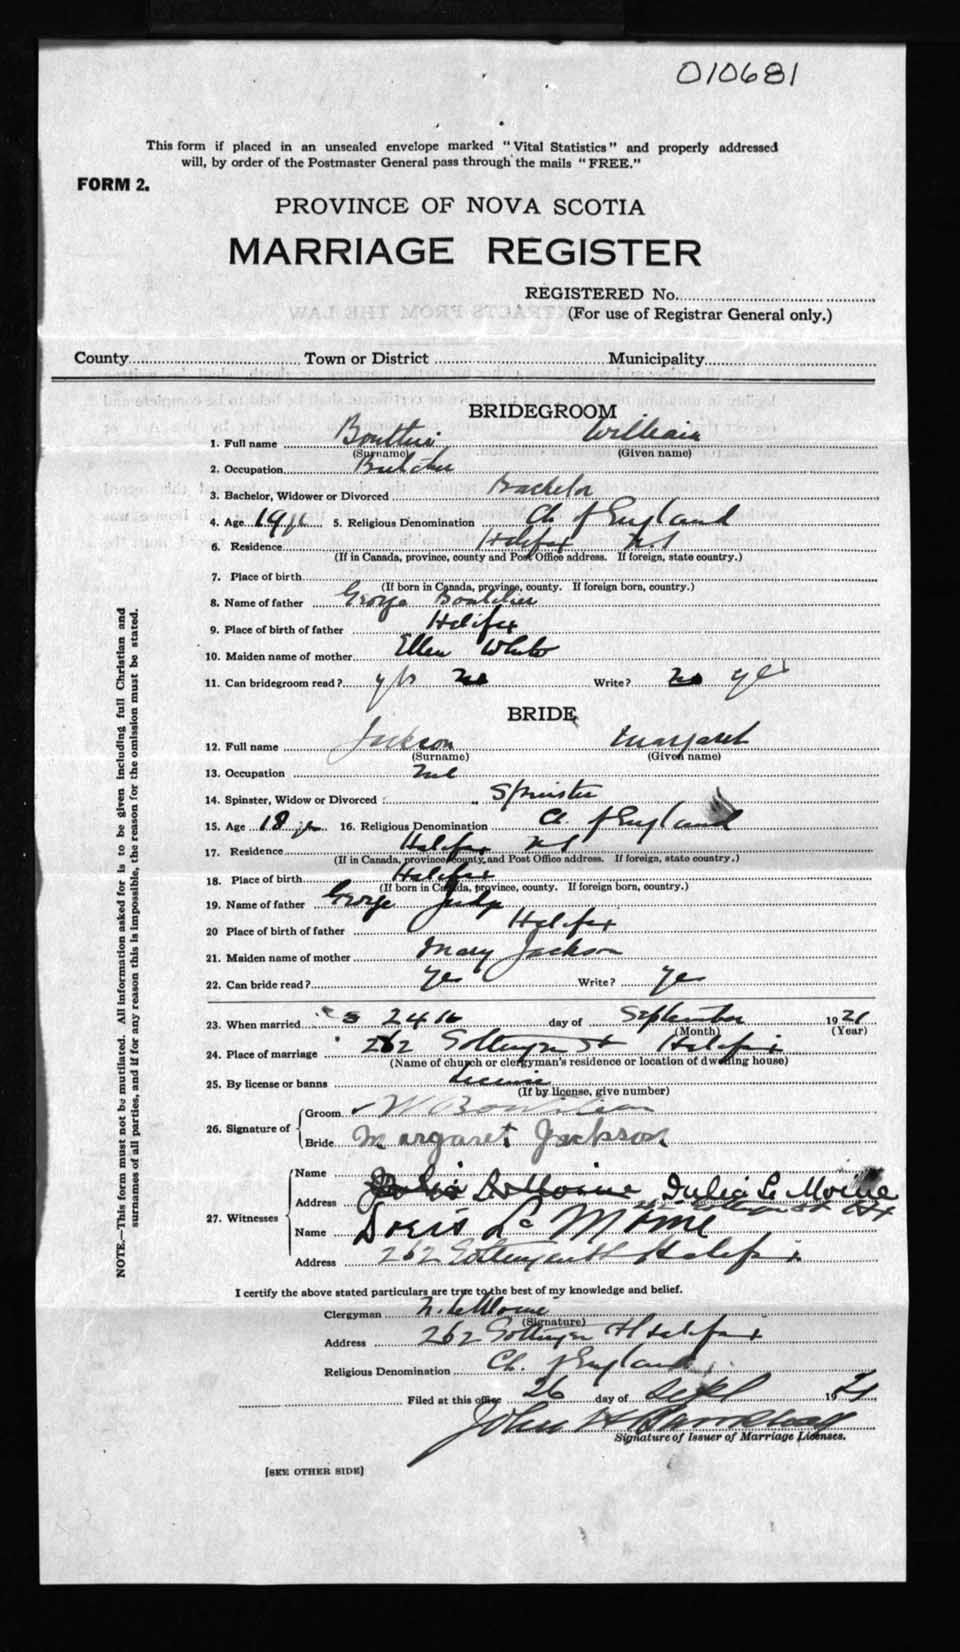 010681
This form if placed in an unsealed envelope marked "Vital Statistics" and properly addressed
will, by order of the Postmaster General pass through the mails "FREE."
FORM 2.
PROVINCE OF NOVA SCOTIA
MARRIAGE REGISTER
REGISTERED No.
(For use of Registrar General only.)
County Town or District Municipality
BRIDEGROOM
1. Full name William
(Surname) (Given name)
2. Occupation Butcher
3. Bachelor, Widower or Divorced Bachelor
4. Age 19 5. Religious Denomination Ch of England
6. Residence Halifax NS
(If in Canada, province, county and Post Office address. If foreign, state country.)
7. Place of birth
(If born in Canada, province, county. If foreign born, country.)
8. Name of father George Boutilier
9. Place of birth of father Halifax
10. Maiden name of mother Ellen White
11. Can bridegroom read? yes no Write? no yes
BRIDE
12. Full name Jackson Margaret
(Surname) (Given name)
13. Occupation
14. Spinster, Widow or Divorced : Spinster
15. Age 18 16. Religious Denomination Ch of England
17. Residence Halifax NS
(If in Canada, province, county, and Post Office address. If foreign, state country.)
18. Place of birth Halifax
(If born in Canada, province, county. If foreign born, country.)
19. Name of father George
20 Place of birth of father Halifax
21. Maiden name of mother Mary Jackson
22. Can bride read? Yes Write? Yes
23. When married 24th day of September 1921
(Month) (Year)
24. Place of marriage 262 Gottingen St Halifax
(Name of church or clergyman's residence or location of dwelling house)
25. By license or banns License
(If by license, give number)
26. Signature of Groom W Boutilier
Bride Margaret Jackson
27. Witnesses Name
Address Julia Le Moine
Gottingen St Hfx
Name Doris Le Moine
Address 262 Gottingen St Halifax
I certify the above stated particulars are true to the best of my knowledge and belief.
Clergyman N. LeMoine
(Signature)
Address 262 Gottingen St Halifax
Religious Denomination Ch. of England
Filed at this office 26 day of Sept 1921
John H
Signature of Issuer of Marriage Licenses.
[SEE OTHER SIDE]
NOTE.—This form must not be mutilated. All information asked for is to be given including full Christian and
surnames of all parties, and if for any reason this is impossible, the reason for the omission must be stated.